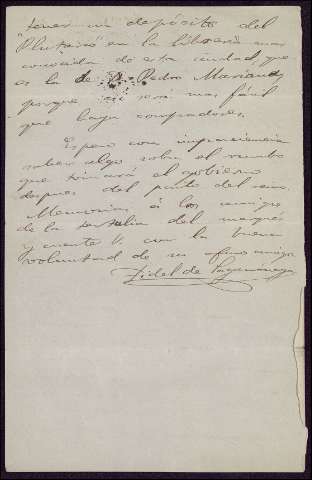 tener un depósito del
"Plutarco" en la librería mas
conocida de esta ciudad, que
es la de D. Pedro Mariano,
porque así será mas fácil
que haya compradores.
Espero con impaciencia
saber algo sobre el rumbo
que tomará el gobierno
despues del parto del
Memorias á los amigos
de la tertulia del
y cuente V. con la buena
voluntad de su afmo amigo
Fidel de